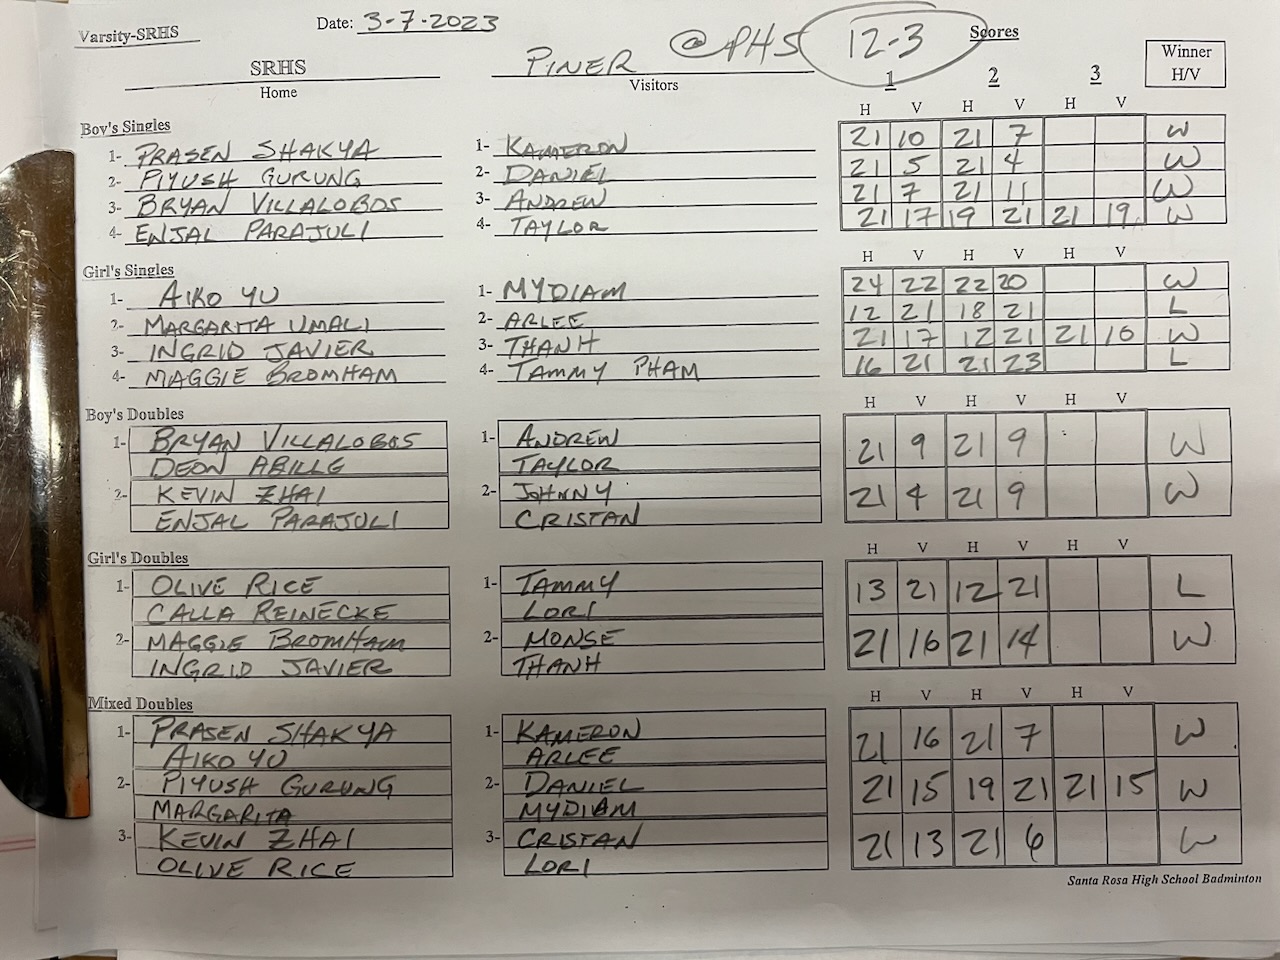 Varsity-SRHS Date: 3-7-2023 @PHS 12-3 Scores Winner H/V
SRHS PINER 1 2 3
Home Visitors
Boy's Singles H V H V H V
1- PRASEN SHAKYA 1- KAMERON 21 10 21 7 W
2- PIYUSH GURUNG 2- DANIEL 21 5 21 4 W
3- BRYAN VILLALOBOS 3- ANDREW 21 7 21 11 W
4- ENJAL PARAJULI 4- TAYLOR 21 17 19 21 21 19 W
Girl's Singles H V H V H V
1- AIKO YU 1- MYDIAM 24 22 22 20 W
2- MARGARITA UMALI 2- ARLEE 12 21 18 21 L
3- INGRID JAVIER 3- THANH 21 17 12 21 21 10 W
4- MAGGIE BROMHAM 4- TAMMY PHAM 16 21 21 23 L
Boy's Doubles H V H V H V
1- BRYAN VILLALOBOS 1- ANDREW 21 9 21 9 W
DEON ABILLE TAYLOR
2- KEVIN ZHAI 2- JOHNNY 21 4 21 9 W
ENJAL PARAJULI CRISTAN
Girl's Doubles H V H V H V
1- OLIVE RICE 1- TAMMY 13 21 12 21 L
CALLA REINECKE LORI
2- MAGGIE BROMHAM 2- MONSE 21 16 21 14 W
INGRID JAVIER THANH
Mixed Doubles H V H V H V
1- PRASEN SHAKYA 1- KAMERON 21 16 21 7 W
AIKO YU ARLEE
2- PIYUSH GURUNG 2- DANIEL 21 15 19 21 21 15 W
MARGARITA MYDIAM
3- KEVIN ZHAI 3- CRISTAN 21 13 21 6 W
OLIVE RICE LORI
Santa Rosa High School Badminton